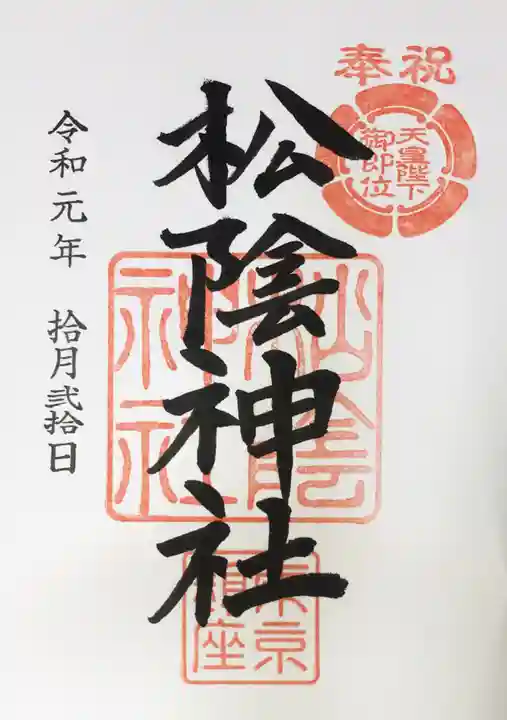 奉祝
天皇陛下
御即位
松陰神社
松陰
神社
東京
鎮座
令和元年 拾月弐拾日